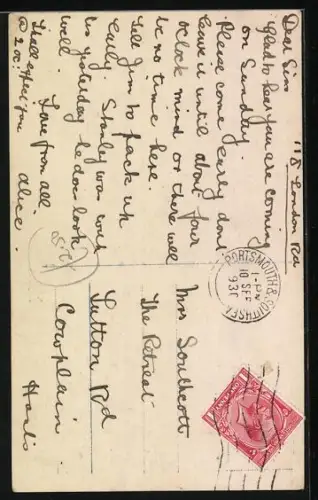 118 London Rd
Dear Siss
Glad to hear you are coming
on Sunday.
Please come early dont
leave it until about four
oclock mind or there will
be no time here.
Tell Jim to pack up
early. Stanley was with
us yesterday he don look
well. Love from all
Alice.
Shall expect you
@ 2 oc.
Mrs Southcott
The Retreat
Sutton Rd
Cowplain
Hants
PORTSMOUTH & SOUTHSEA
1 - PM
10 SEP